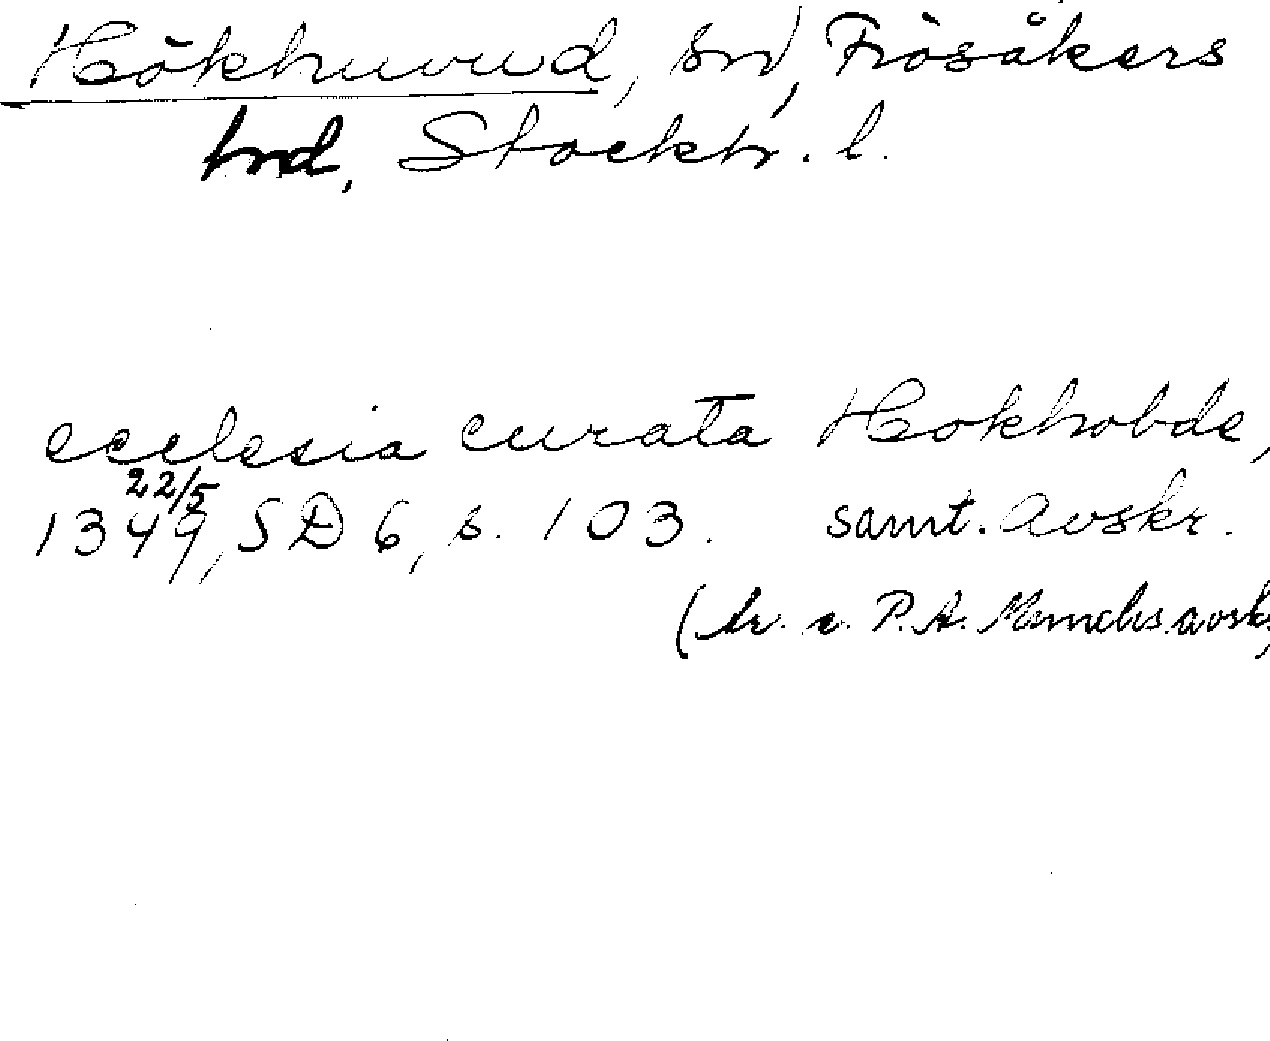 Hökhuvud, sn, Frösåkers
hrd, Stockh. l.
ecclesia curata Hokhobde,
22/5
1349, SD 6, s. 103. samt. avskr.
(tr. e. P. A. Munchs avskr.)